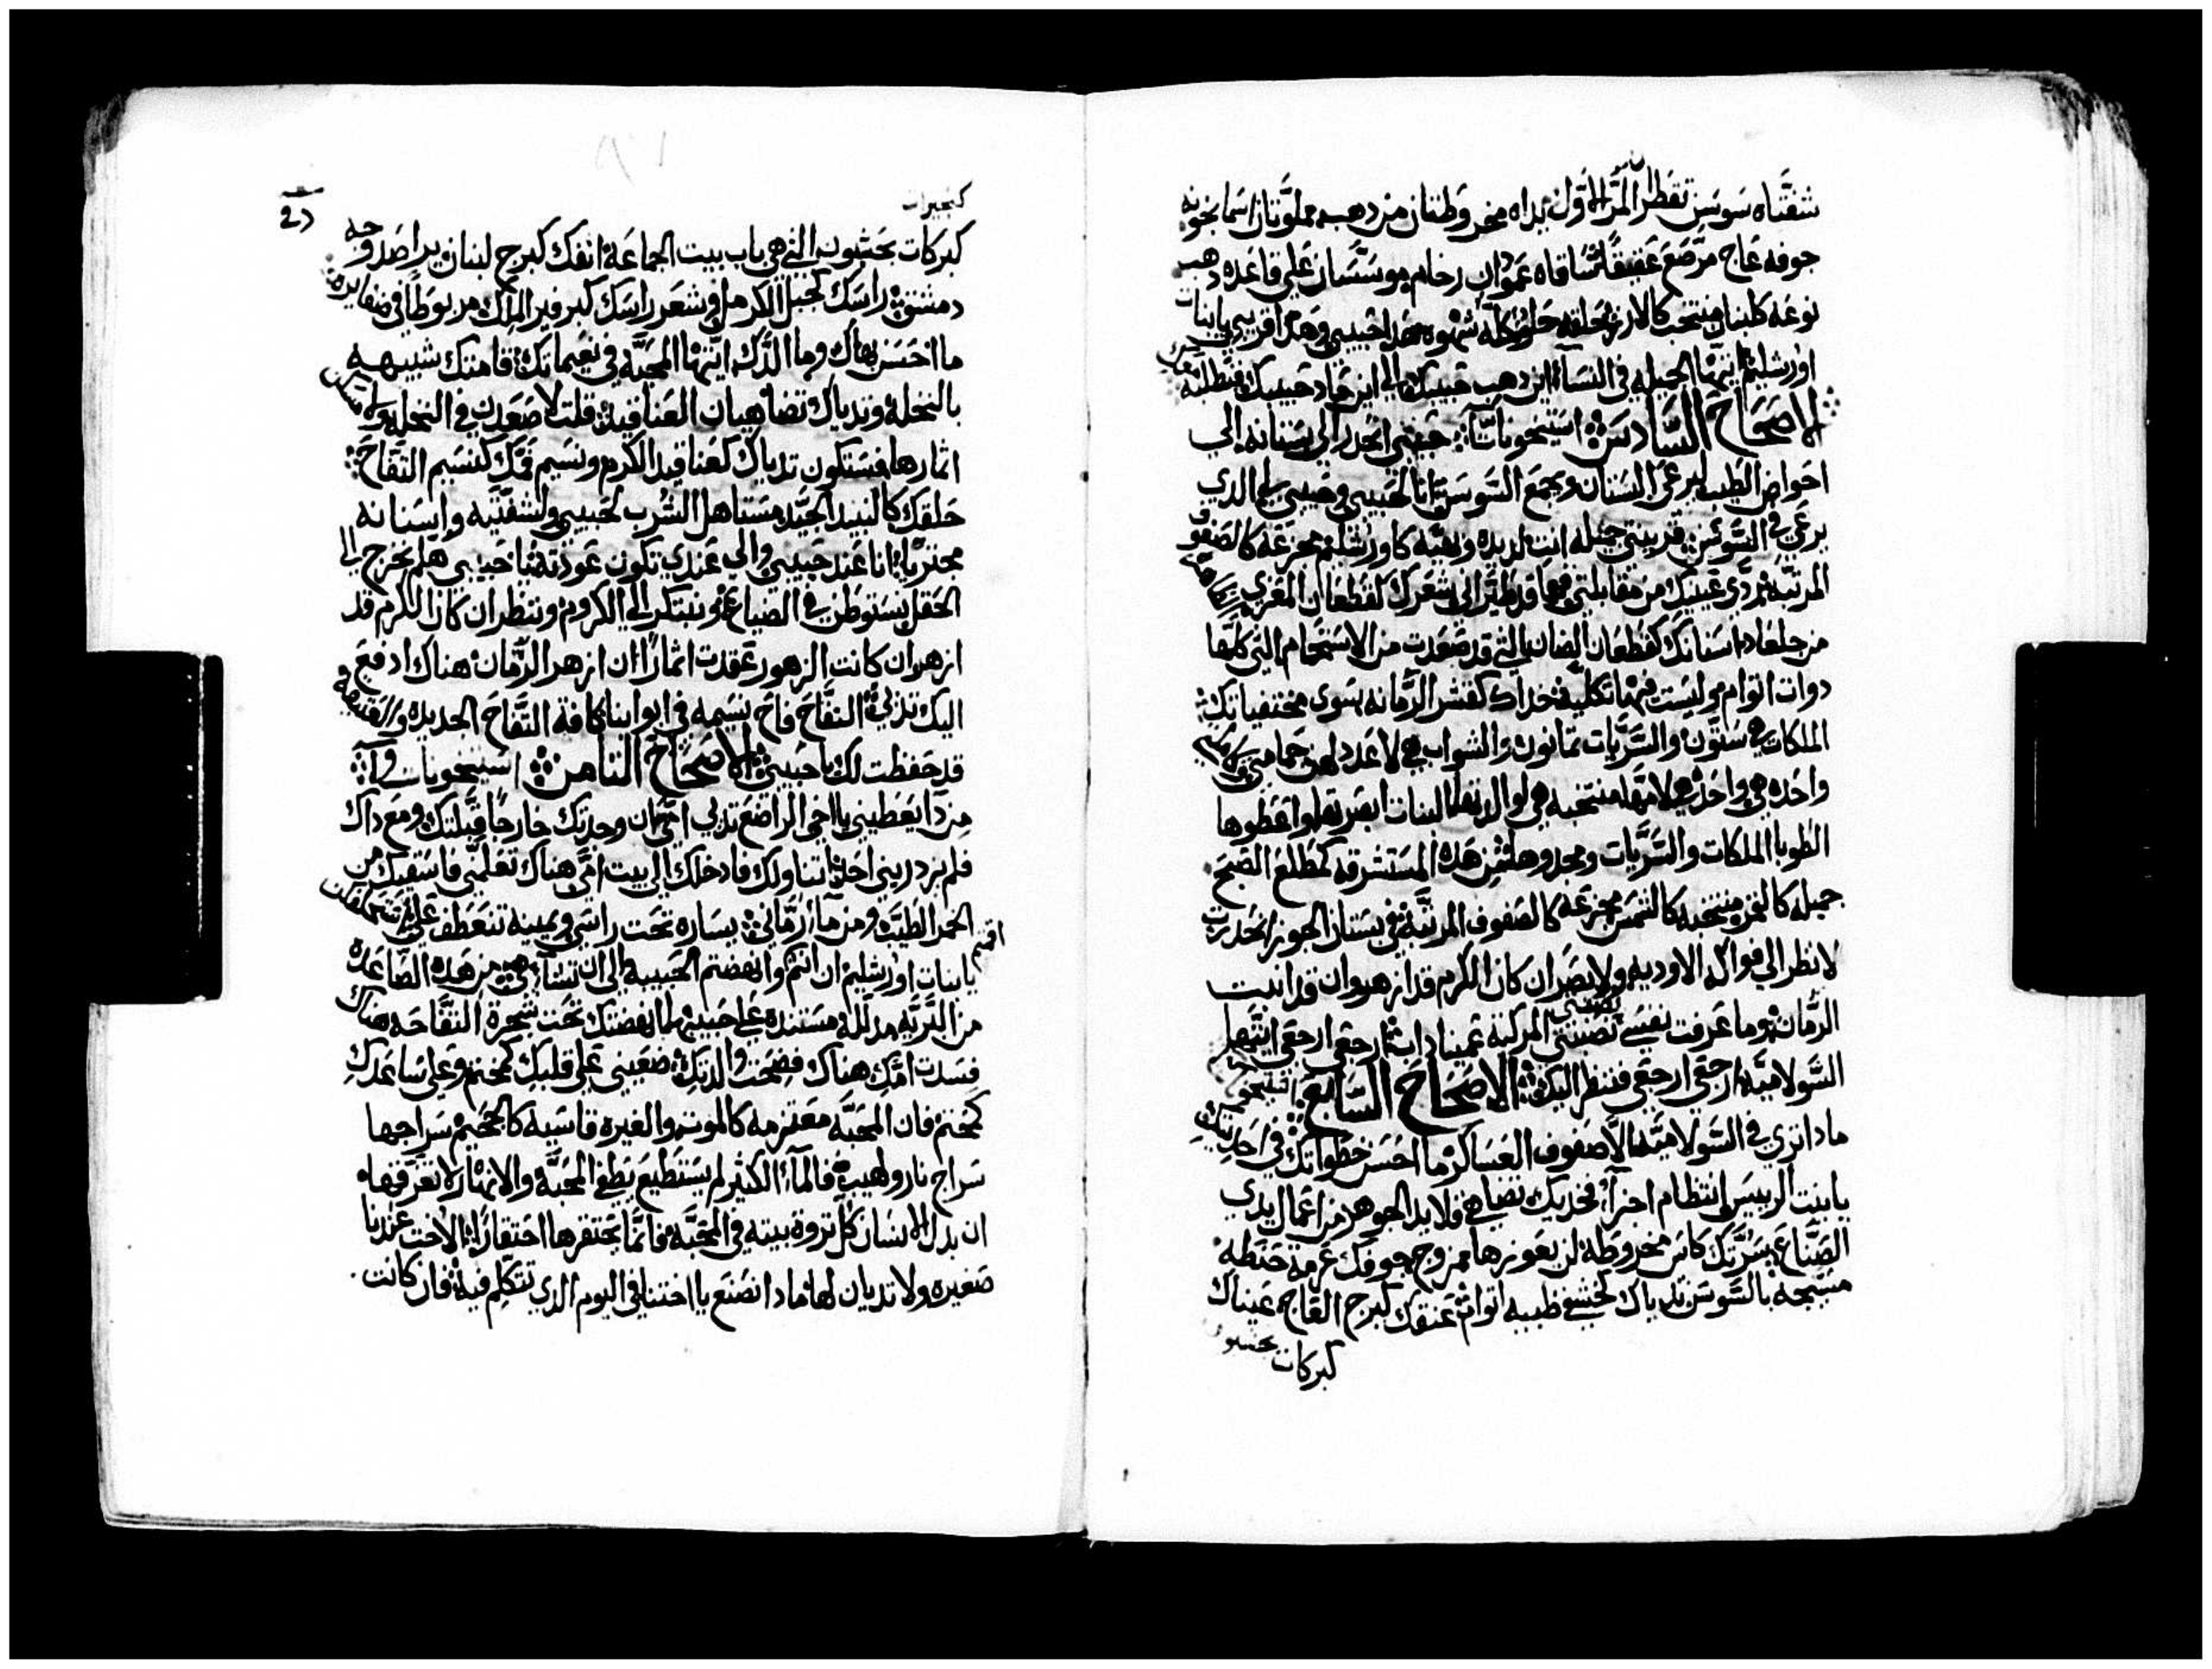 شفتاه سوسن تقطران المر الاول يداه مخروطتان من دهب مملوتان اسمانجونيه
جوفه عاج مرصع عقيقا ساقاه عمودان رخام موسسان على قاعده دهب
نوعه كلبنان منتخب كالارز حلقه حلو وكله شهوه هدا حبيبي وهدا قريبي يا بنات
اورشليم ايتها الجميله في النسآ اين دهب حبيبك الي اين حاد حبيبك فنطلبه معك
الاصحاح السادس استيخويات حبيبي انحدر الي بستانه الي
احواض الطيب ليرعى البستان ويجمع السوسن انا لحبيبي وحبيبي لي الدي
يرعى في السوسن قريبتي جميله انت لديده وبهيه كاورشليم مجزعه كالصفوف
المرتبه ردي عينيك من مقابلتي فهما قد طيراني شعرك كقطعان المعزي
من جلعاد اسنانك كقطعان الضان التي قد صعدت من الاستحمام التي كلها
دوات اتوام وليست فيها تكلي خداك كقشر الرمانه سوى مختفياتك
الملكات هي ستون والسريات تمانون والشواب هي لا عدد لهن حمامتي
واحده هي واحده هي لامها منتخبه هي لوالدتها البنات ابصرتها واعطوها
الطوبا الملكات والسريات ومجدوها من هده المستشرفه كمطلع الصبح
جميله كالقمر منتخبه كالشمس مجزعه كالصفوف المرتبه في بستان الجوز انحدرت
لانظر الي فواكه الاوديه ولابصر ان كان الكرم قد ازهر وان قد انبت
الرمان وما عرفت نفسي نصبتني المركبه عميناداب ارجعي ارجعي ايتها
السولاميه ارجعي ارجعي فننظر اليك الاصحاح السابع
مادا تري في السولاميه الا صفوف العساكر ما احسن خطواتك في احديتك
يا بنت الرييس انتظام اجزآ فخديك تضاهي قلايد الجوهر من اعمال يدي
الصناع سرتك كاس مخروطه لن يعوزها ممزوج جوفك عرمة حنطه
مسيجه بالسوسن تدياك كخشفي ظبيه اتوام عنقك كبرج العاج عيناك
كبركات
كبحيرات
كبركات بحشبون التي هي باب بيت الجماعه انفك كبرج لبنان يراصد وجه
دمشق راسك كجبل الكرمل وشعر راسك كبرفير الملك مربوطا في ضفايره
ما احسن بهاك وما الدك ايتها المحبه في نعيماتك قامتك شبيهه
بالنخله وتدياك تضاهيان العناقيد قلت لاصعدن في النخله ولامسكن
اتمارها فستكون تدياك كعناقيد الكرم ونسيم فمك كنسيم التفاح
حلقك كالنبيد الجيد مستاهل الشرب لحبيبي ولشفتيه واسنانه
مجتريا انا عند حبيبي والي عندي تكون عودته يا حبيبي هلم نخرج الي
الحقل نستوطن في الضياع نبتكر الي الكروم وننظر ان كان الكرم قد
ازهر وان كانت الزهور عقدت اتمارا ان ازهر الرمان هناك ادفع
اليك تديي التفاح فاح نسيمه في ابوابنا كافة التفاح الجديده والقديمه
قد حفظت لك يا حبيبي الاصحاح التامن استيخويات
من دا يعطيني يا اخي الراضع تديي امي ان وجدتك خارجا قبلتك ومع داك
فلم يزدريني احد اتناولك فادخلك الي بيت امي هناك تعلمني فاسقيك من
الخمر الطيب ومن مآ رماني يساره تحت راسي ويمينه تتعطف علي استحلفكن
اقسم
يا بنات اورشليم ان انتم وانهضتم الحبيبه الي ان تشآ هي من هده الصاعده
من البريه مدلله مستنده علي حبيبها انهضتك تحت شجرة التفاحه هناك
فسدت امك هناك فضحت والدتك ضعيني علي قلبك كختم وعلى ساعدك
كختم فان المحبه معتزمه كالموت والغيره قاسيه كالجحيم سراجها
سراج نار ولهيب فالمآ الكتير لم يستطيع يطفي المحبه والانهار لا تغرقها
ان بدل الانسان كل تروة بيته في المحبه فانما يحتقرها احتقارا الاخت عندنا
صغيره ولا تديان لها مادا نصنع يا اختنا في اليوم الدي تتكلم فيه فان كانت